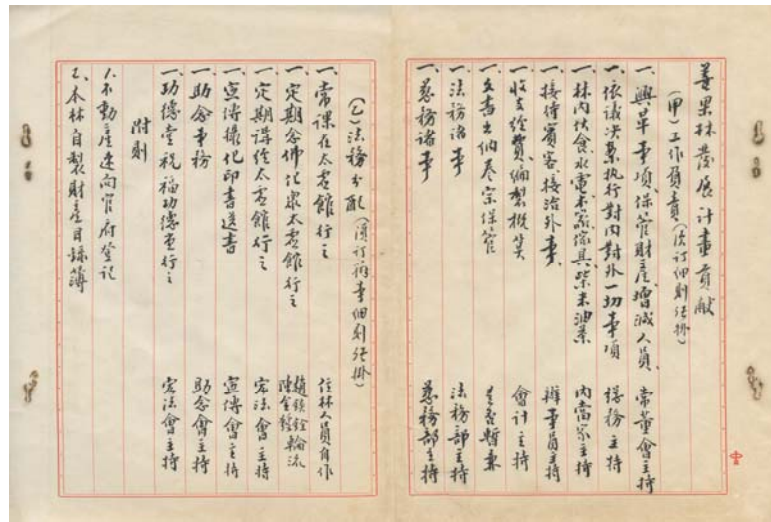 善果林發展計畫貢獻
(甲)工作負責(須訂細則張掛)
一、興革事項、保管財產、增減人員、 常董會主持
一、依議決案执行對內對外一切事項 總務主持
一、林內伙食水電木器傢具柴米油菜 內當家主持
一、接待賓客、接洽外事、 辦事員主持
一、收支經費編製概算 會計主持
一、文書出納卷宗保管 暫兼
一、法務諸事 法務部主持
一、慈務諸事 慈務部主持
(乙)法務分配(須訂辦事細則張掛)
一、常課在太虛館行之 住林人員自作
一、定期念佛化眾太虛館行之 趙鋑銓 陳金 輪流
一、定期講經太虛館行之 宏法會主持
一、宣傳攝化印書送書 宣傳會主持
一、助念事務 助念會主持
一、功德堂祝福功德堂行之 宏法會主持
附則
1.不動產逕向官府登記
2.本林自製財產目錄簿